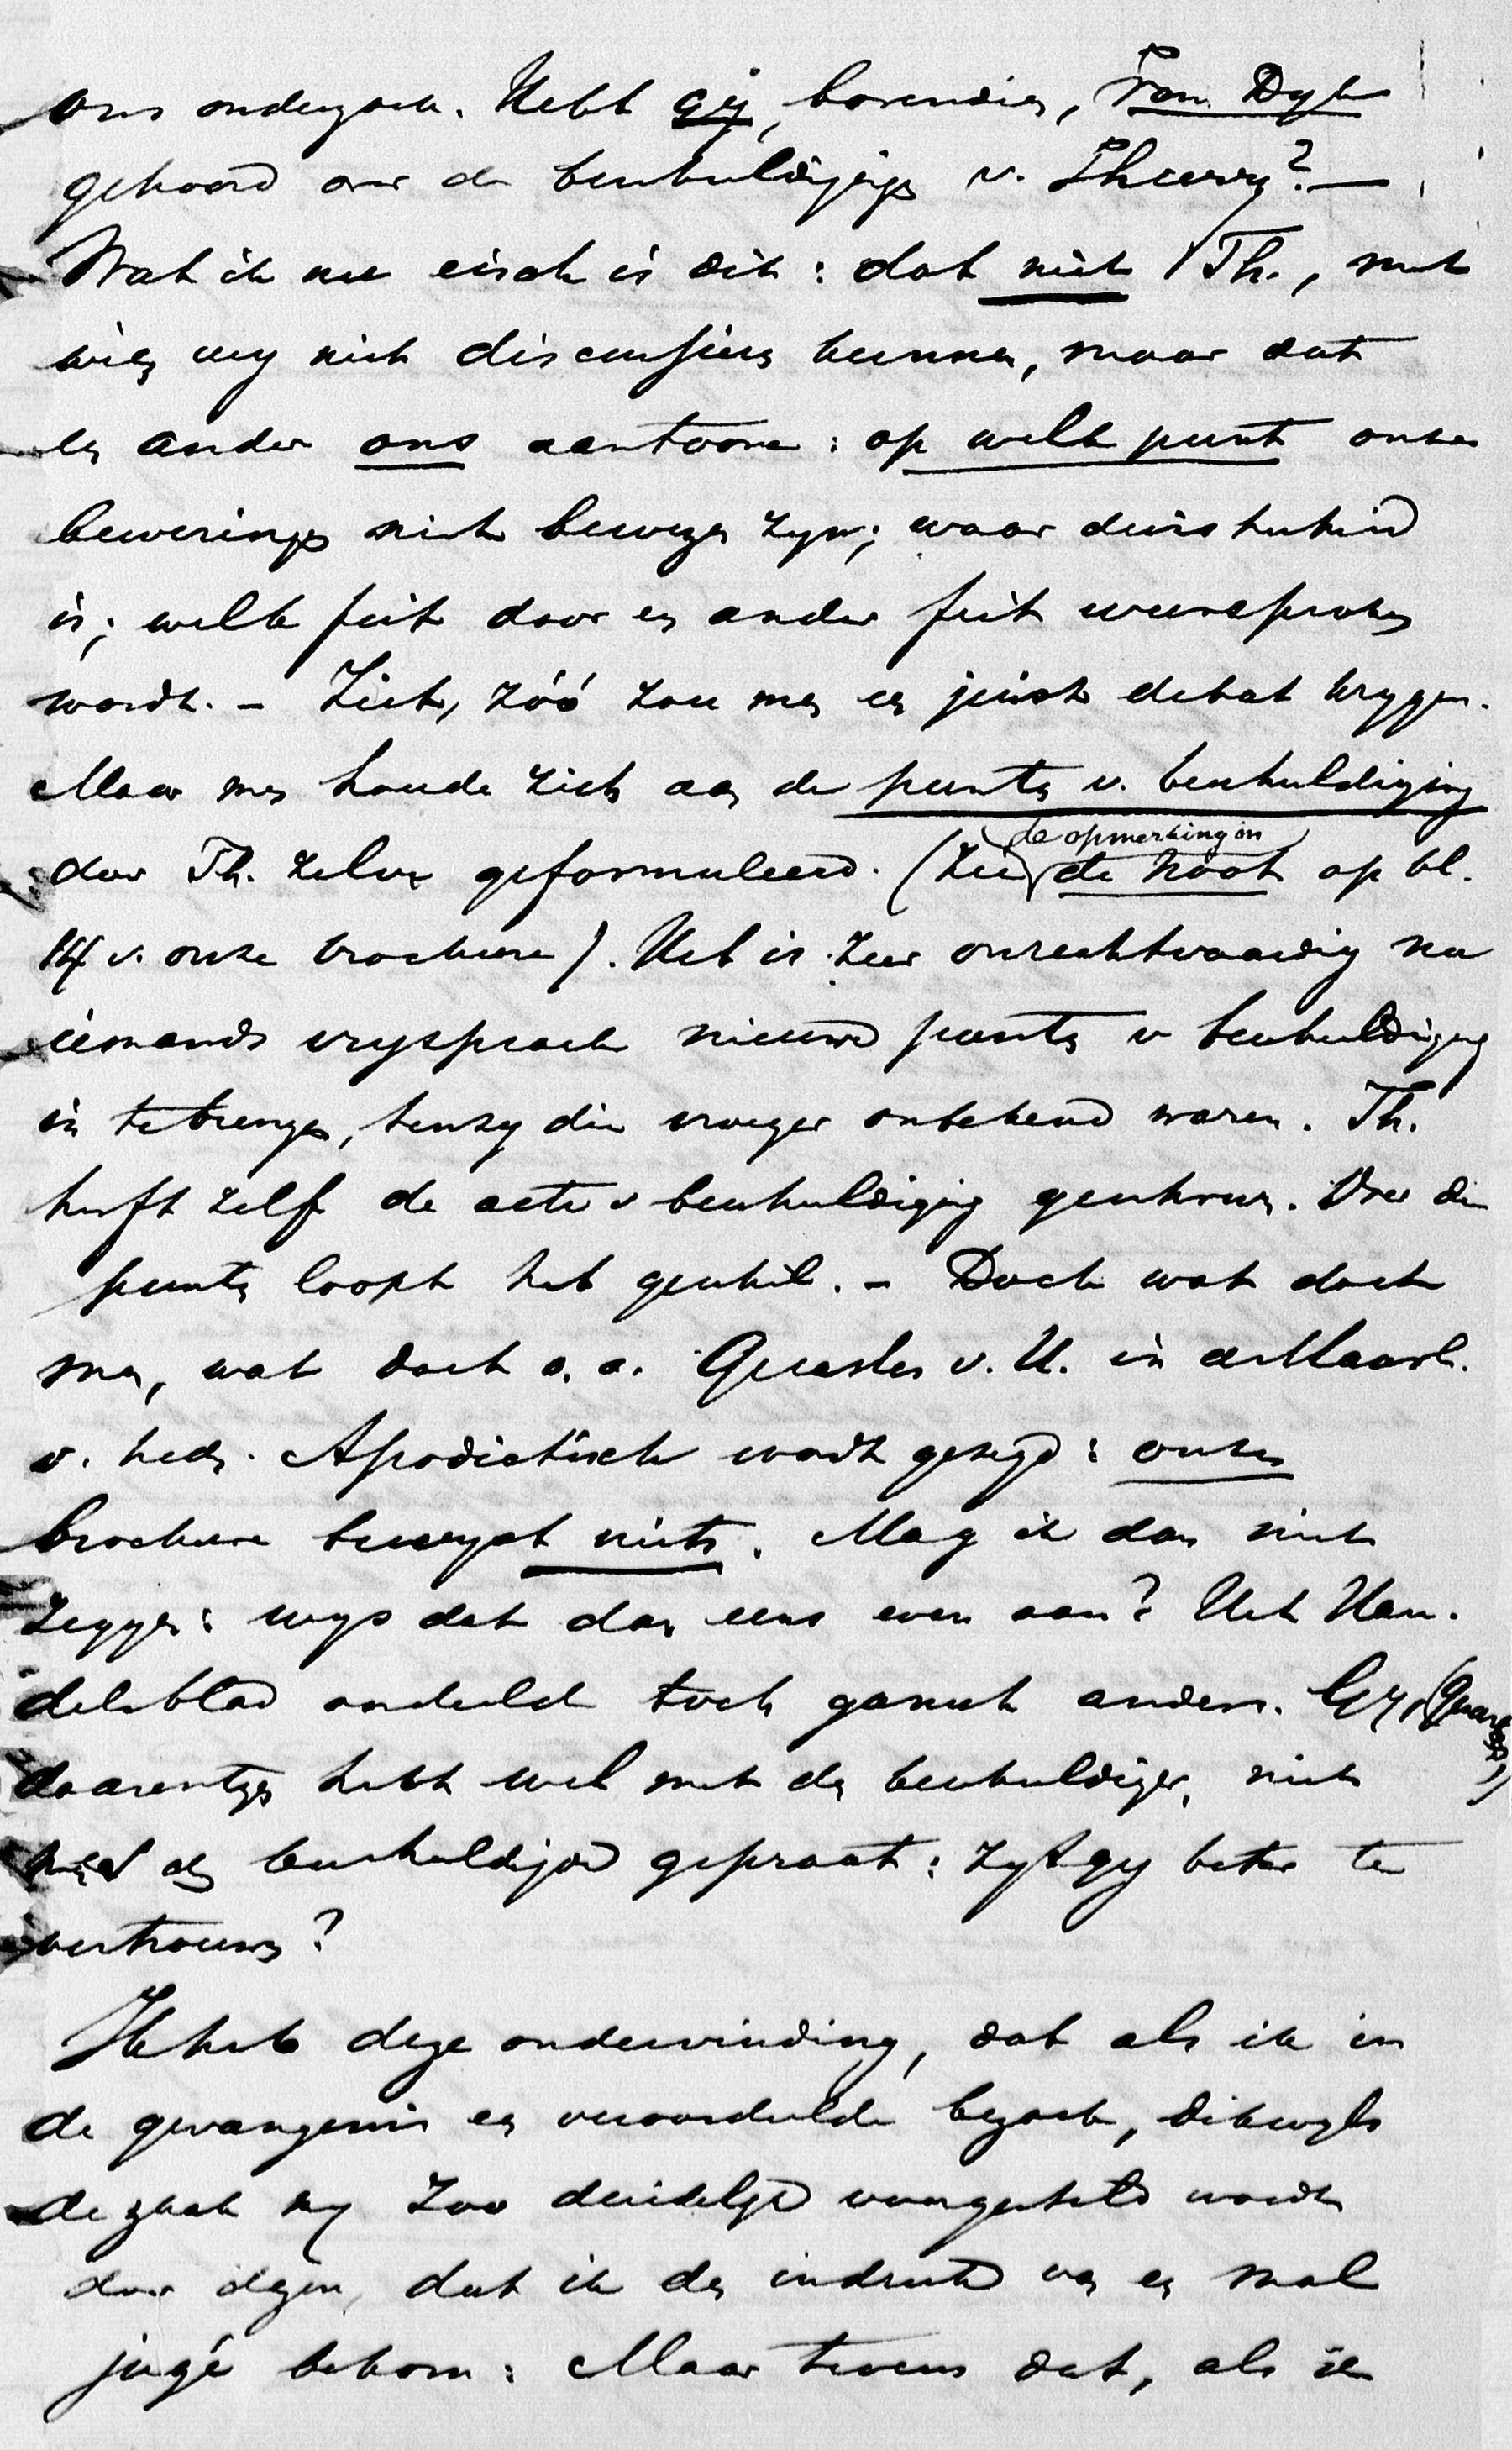 ons onderzoek. Hebt gij, bovendien, Van Dyk
gehoord over de beschuldigings v. Theury? —
Wat ik nu eisch is dit: dat niet Th., met
wien wy niet discussieren kunnen, maar dat
een ander ons aantoone: op welk punt onze
beweringen niet bewezen zyn; waar duisterheid
is; welk feit door een ander feit weersproken
wordt. – Ziet, zóó zou men een juist debat krygen.
Maar men houde zich aan de punten v. beschuldiging
door Th. zelve geformuleerd. (Zie de opmerking in de noot op bl.
14 v. onze brochure). Het is zeer onrechtvaardig na
iemands vryspraak nieuwe punten v beschuldiging
in te brengen, tenzy die vroeger onbekend waren. Th.
heeft zelf de acte v beschuldiging geschreven. Over die
punten loopt het geschil. – Doch wat doet
men, wat doet o. a. Quarles v. U. in de Maasb.
v. heden. Apodictisch wordt gezegd: onze
brochure bewyst niets. Mag ik dan niet
zeggen: wys dat dan eens even aan? Het Han-
delsblad oordeelde toch gansch anders. Gy, (Quarles)
daarentegen hebt wel met den beschuldiger, niet
met den beschuldigde gepraat: zyt gy beter te
vertrouwen?
Ik heb deze ondervinding, dat als ik in
de gevangenis een veroordeelde bezoek, dikwyls
de zaak my zoo duidelyk voorgesteld wordt
door dezen, dat ik den indruk van een mal
jugé bekom: Maar tevens dat, als ik